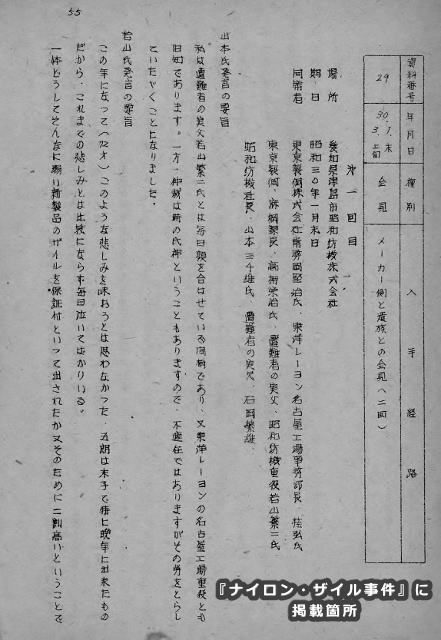 55
資料番号 年月日 種別 入手経路
29 30.1.末 3.上旬 会見 メーカー側と遺族との会見(二回)
第一回目
場所 愛知県津島市昭和紡機株式会社
期日 昭和三〇年一月末日
同席者 東京製綱株式会社常務 氏、東洋レーヨン名古屋工場 部長 氏
東京製綱、麻綱課長、 氏、遭難者の実父、昭和紡機重役若山繁二氏
昭和紡機社長、山本三千雄氏 遭難者の実兄、石岡繁雄
山本氏発言の要旨
私は遭難者の実父若山繁二氏とは毎日顔を合はせている同柄であり、又東洋レーヨンの名古屋工場重役とも
旧知であります。一方、仲裁は時の氏神ということもありますので、不適任ではありますがその労をとらし
ていたゞくことになりました。
若山氏発言の要旨
この年になって(72才)このような悲しみを味わおうとは思わなかった。五朗は末子で特に晩年に出来たもの
だから、これまでの悲しみとは比較にならず毎日泣いてばかりいる。
一体どうしてそんなに弱い新製品のザイルを保証付といって出されたか又そのために二割高いということで
『ナイロン・ザイル事件』に
掲載箇所